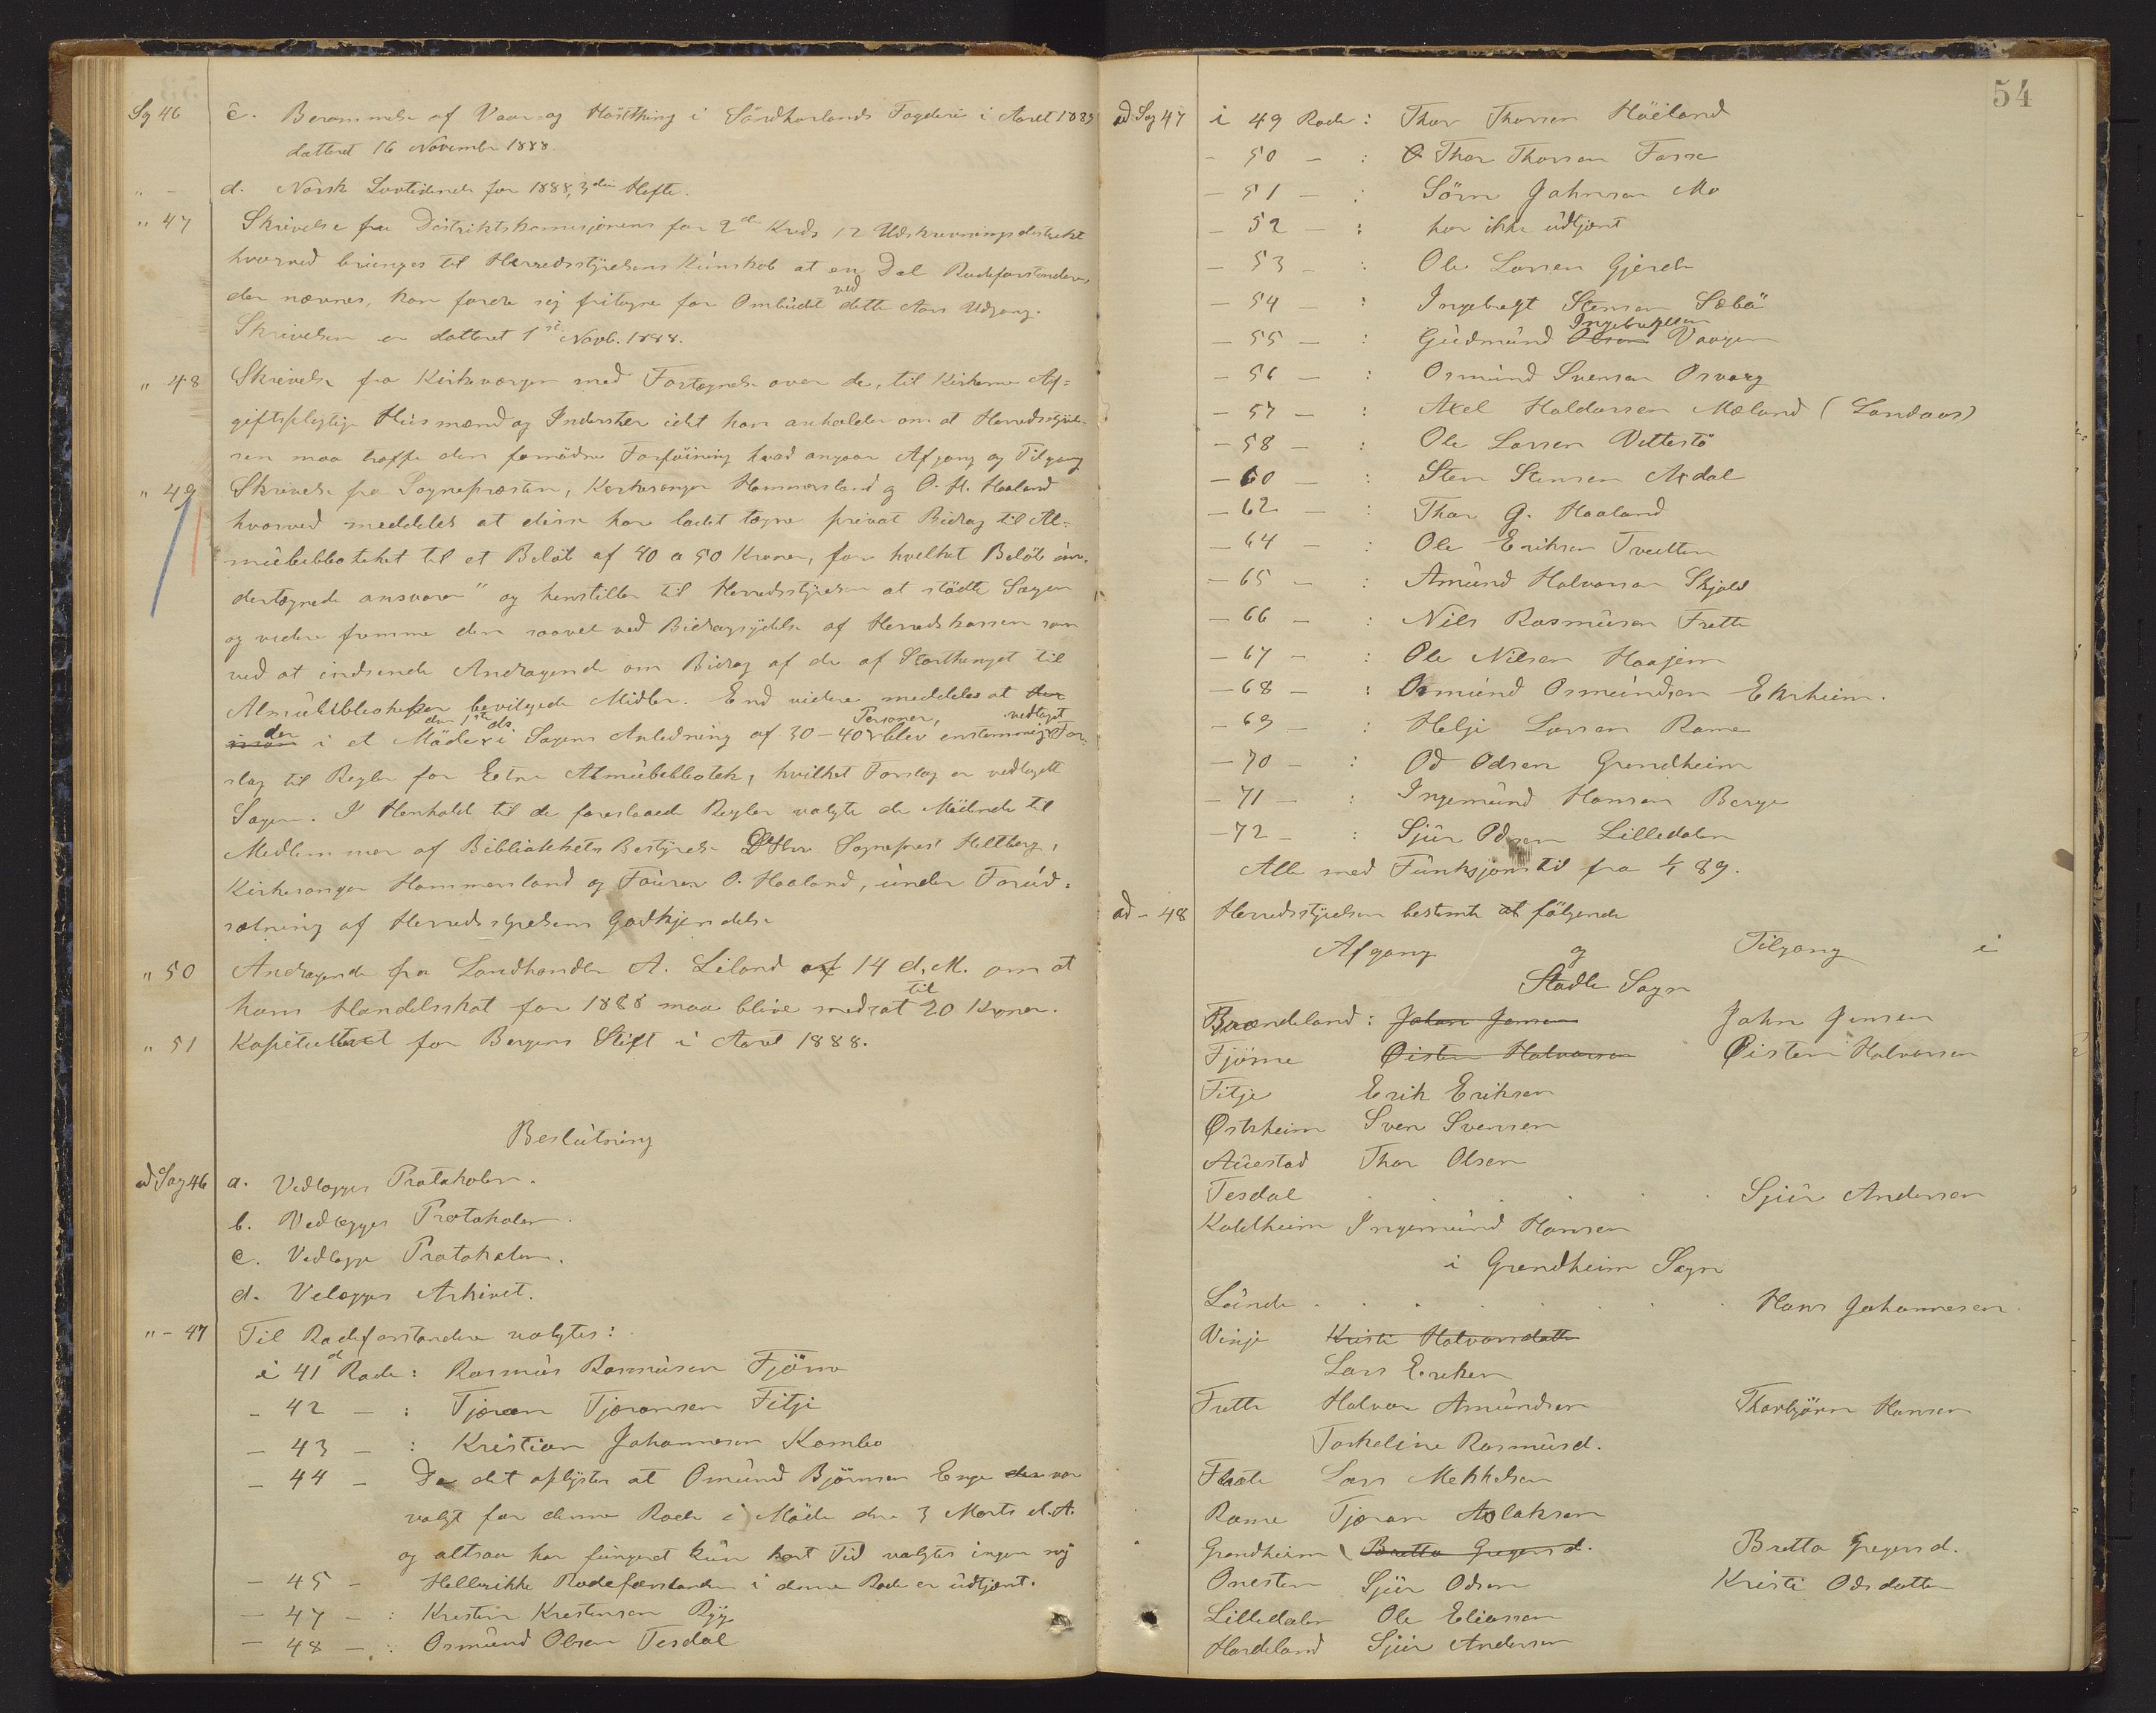 Sag 46 c. Berammelse af Vaar og Høstthing i Søndhorlands Fogderi i Aaret 1889
datteret 16 November 1888.
" - d. Norsk Lovtidende for 1888, 3die Hefte.
" 47 Skrivelse fra Distriktskomisjonens for 2den Kreds 12 Udskrevningsdistrikt
hvorved bringes til Herredsstyrelsens Kúnskab at en Del Rodeforstandere,
der nævnes, kan fordre sig fritagne for Ombúdet ved dette Aars Udgang.
Skrivelsen er datteret 1ste Novb. 1888.
" 48 Skrivelse fra Kirkevergen med Fortegnelse over de, til Kirkerne Af=
giftspligtige Húsmænd og Inderster idet han anholder om at Herredsstyrel-
sen maa træffe den fornødne Forføining hvad angaar Afgang og Tilgang
" 49 Skrivelse fra Sognepræsten, Kirkesanger Hammersland og O. H. Haaland
hvorved meddeles at disse har ladet tegne privat Bidrag til Al=
múebibliotheket til et Beløb af 40 a 50 Kroner, for hvilket Beløb ún-
dertegnede ansvarer" og henstiller til Herredsstyrelsen at støtte Sagen
og videre fremme den saavel ved Bidragsydelse af Herredskassen som
ved at indsende Andragende om Bidrag af de af Storthinget til
Almúebibliotheker bevilgede Midler. End videre meddeles at der
den i et Møde den 1ste ds i Sagens Anledning af 30-40 Personer, blev enstemmigt vedtaget For-
slag til Regler for Etne Almúebibliotek, hvilket Forslag er vedlagt
Sagen. I Henhold til de foreslaaede Regler valgte de Mødende til
Medlemmer af Bibliothekets Bestyrelse DHrr Sogneprest Heltberg,
Kirkesanger Hammersland og Fører O. Haaland, únder Forúd=
sætning af Herredsstyrelsens Godkjendelse
" 50 Andragende fra Landhandler A. Leland af 14 d. M. om at
hans Handelsskat for 1888 maa blive nedsat til 20 Kroner.
" 51 Kapitultaxt for Bergens Stift i Aaret 1888.
Beslútning
ad Sag 46 a. Vedlægges Protokolen.
b. Vedlægges Protokolen.
c. Vedlægges Protokolen.
d. Velægges Arkivet.
" - 47 Til Rodeforstandere valgtes:
i 41de Rode: Rasmús Rasmúsen Fjøsne
- 42 - : Tjæran Tjæransen Fitje
- 43 - : Kristian Johannesen Kambo
- 44 - Da det oplystes at Omúnd Bjørnsen Enge der var
valgt for denne Rode i Møde den 3 Marts d. A.
og altsaa har fúngeret kún kort Tid valgtes ingen nÿ
- 45 - Hellerikke Rodeforstanderen i denne Rode er údtjent.
- 47 - : Kristen Kristensen Rÿg
- 48 - : Osmúnd Olsen Tesdal
54
ad Sag 47 i 49 Rode: Thor Thorsen Høiland
- 50 - : Thor Thorsen Fosse
- 51 - : Søren Johnsen Mo
- 52 - : har ikke údtjent
- 53 - : Ole Larsen Gjerde
- 54 - : Ingebregt Stensen Sæbø
- 55 - : Gúdmúnd Olsen Ingebregtsen Vaagen
- 56 - : Osmúnd Svensen Osvaag
- 57 - : Axel Haldorsen Mæland (Landaas)
- 58 - : Ole Larsen Vettestø
- 60 - : Sten Stensen Axdal
- 62 - : Thor G. Haaland
- 64 - : Ole Eriksen Tveitten
- 65 - : Amúnd Halvorsen Skjold
- 66 - : Nils Rasmúsen Frette
- 67 - : Ole Nilsen Haajem
- 68 - : Osmúnd Osmúndsen Ekrheim.
- 69 - : Helje Larsen Rame
- 70 - : Od Odsen Grendheim
- 71 - : Ingemúnd Hansen Berge
- 72 - : Sjúr Odsen Lilledalen
Alle med Fúnksjonstid fra 1/1 89.
ad - 48 Herredsstyrelsen bestemte at følgende
Afgang og Tilgang i
Stødle Sogn
Brændeland: Johan Jensen John Jensen
Fjøsne Øisten Halvorsen Øisten Halvorsen
Fitje Erik Eriksen
Østrheim Sven Svensen
Aúestad Thor Olsen
Tesdal . . . . . Sjúr Andersen
Kaldheim Ingemúnd Hansen
i Grendheim Sogn
Lúnde . . . . . . Hans Johannesen
Vinje Kristi Halvorsdatter
Lars Eriksen
Frette Halvor Amúndsen Thorbjørn Hansen
Torkeline Rasmúsd.
Flaate Lars Mekkelsen
Rame Tjæran Aslaksen
Grendheim Bretta Gregersd. Bretta Gregersd.
Onesten Sjúr Odsen Kristi Odsdatter
Lilledalen Ole Eliassen
Hardeland Sjúr Andersen